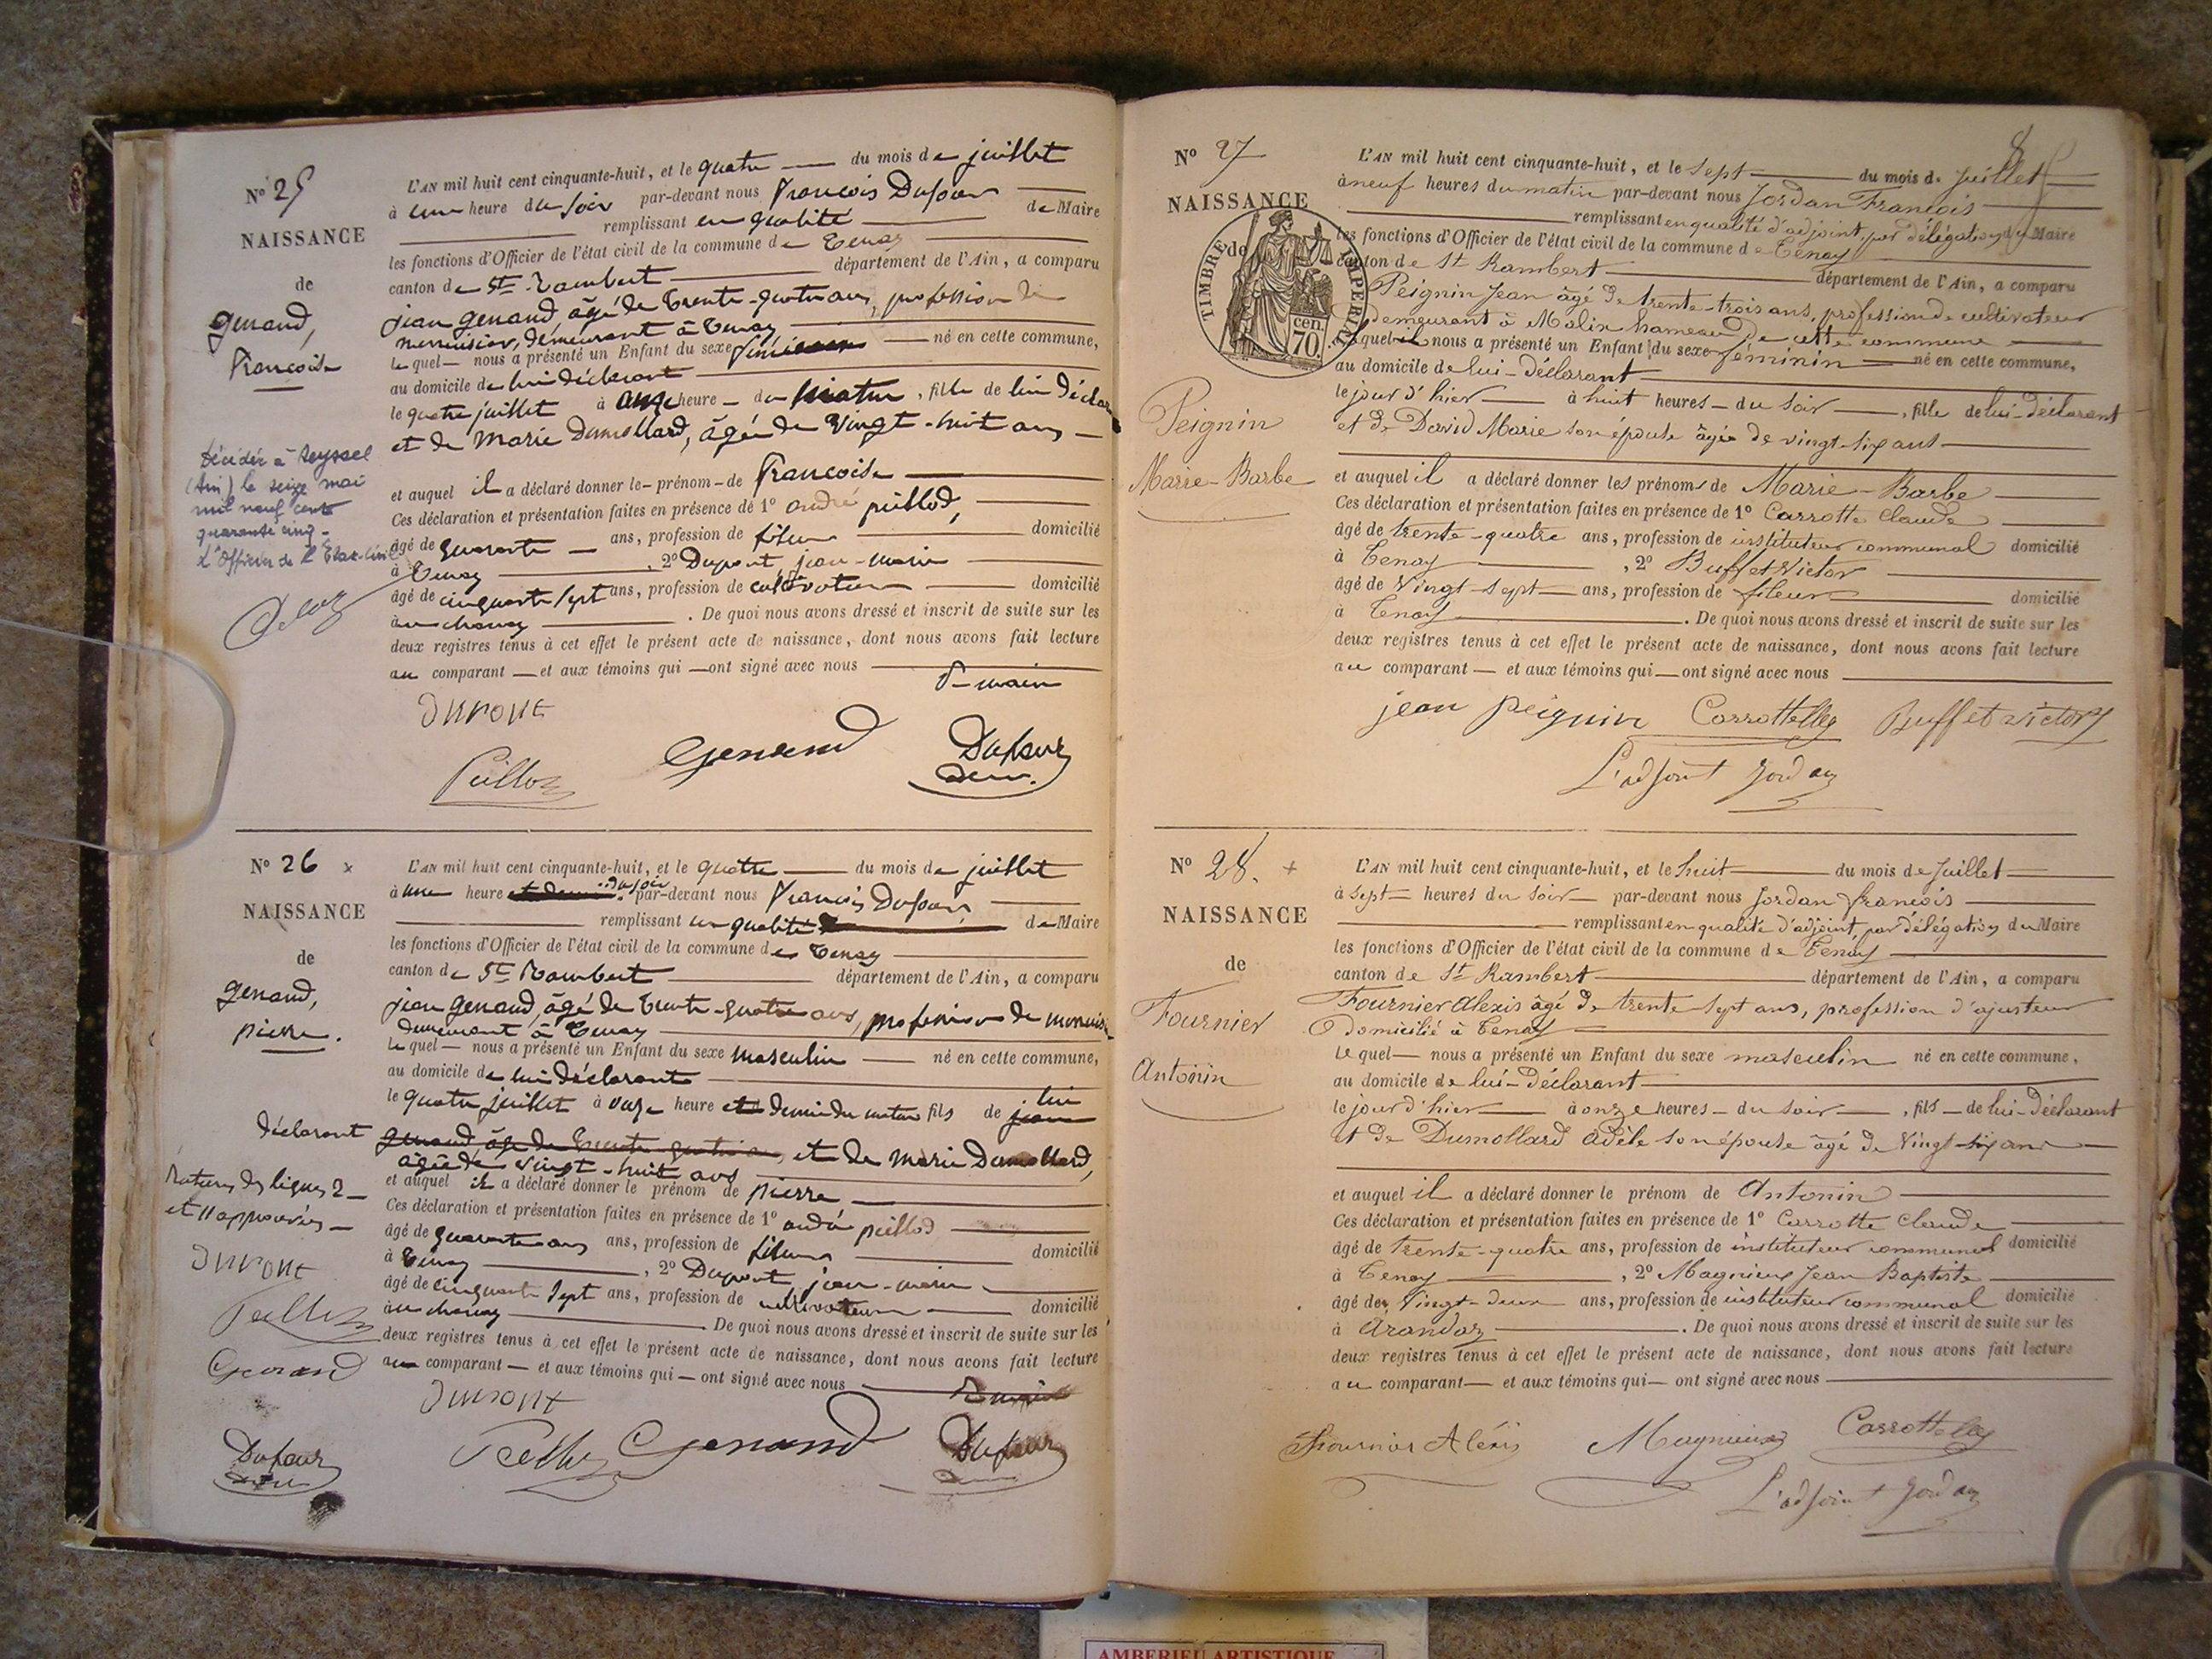 N° 25
NAISSANCE
de
genand,
francoise
L'AN mil huit cent cinquante-huit, et le quatre du mois de juillet
à une heure du soir par-devant nous francois Dufour
remplissant en qualité de Maire
les fonctions d'Officier de l'état civil de la commune de Tenay
canton de St Rambert département de l'Ain, a comparu
jean genand âgé de trente-quatre ans, profession de
menuisier, demeurant à Tenay
lequel nous a présenté un Enfant du sexe féminin né en cette commune,
au domicile de lui déclarant
le quatre juillet à onze heure du matin, fille de lui déclar
et de Marie Dumollard, âgée de vingt-huit ans
et auquel il a déclaré donner le prénom de francoise
Ces déclaration et présentation faites en présence de 1° andré peillod,
âgé de quarante ans, profession de fileur domicilié
à Tenay, 2° Dupont, jean-marie
âgé de cinquante sept ans, profession de cultivateur domicilié
au chanay. De quoi nous avons dressé et inscrit de suite sur les
deux registres tenus à cet effet le présent acte de naissance, dont nous avons fait lecture
au comparant et aux témoins qui ont signé avec nous
Décédée à Seyssel
(Ain) le seize mai
mil neuf cent
quarante cinq.
L'Officier de l'Etat-Civil
Dupont
Genand
Dufour
N° 26 x
NAISSANCE
de
genand,
pierre.
L'AN mil huit cent cinquante-huit, et le quatre du mois de juillet
à une heure et demie du soir par-devant nous francois Dufour,
remplissant en qualité de Maire
les fonctions d'Officier de l'état civil de la commune de Tenay
canton de St Rambert département de l'Ain, a comparu
jean genand, âgé de trente-quatre ans, profession de menuis
demeurant à Tenay
lequel nous a présenté un Enfant du sexe masculin né en cette commune,
au domicile de lui déclarant
le quatre juillet à onze heure et demie du matin fils de jean lui
déclarant genand âgé de trente quatre ans, et de marie Dumollard,
âgée de vingt-huit ans
et auquel il a déclaré donner le prénom de pierre
Ces déclaration et présentation faites en présence de 1° andré peillod
âgé de quarante ans ans, profession de fileur domicilié
à Tenay, 2° Dupont, jean-marie
âgé de cinquante sept ans, profession de cultivateur domicilié
au chanay. De quoi nous avons dressé et inscrit de suite sur les
deux registres tenus à cet effet le présent acte de naissance, dont nous avons fait lecture
au comparant et aux témoins qui ont signé avec nous
Ratures des lignes 2
et 11 approuvées
Dupont
Genand
Dufour
Dupont
Genand
Dufour
8
N° 27
NAISSANCE
de
TIMBRE IMPERIAL
70 cen.
Peignin
Marie-Barbe
L'AN mil huit cent cinquante-huit, et le sept du mois de Juillet
à neuf heures du matin par-devant nous Jordan François
remplissant en qualité d'adjoint, par délégation du Maire
les fonctions d'Officier de l'état civil de la commune de Tenay
canton de St Rambert département de l'Ain, a comparu
Peignin Jean âgé de trente-trois ans, profession de cultivateur
demeurant à Malix hameau de cette commune
lequel nous a présenté un Enfant du sexe féminin né en cette commune,
au domicile de lui-déclarant
le jour d'hier à huit heures du soir, fille de lui-déclarant
et de David Marie son épouse âgée de vingt-six ans
et auquel il a déclaré donner les prénoms de Marie-Barbe
Ces déclaration et présentation faites en présence de 1° Carrotte Claude
âgé de trente-quatre ans, profession de instituteur communal domicilié
à Tenay, 2° Buffet Victor
âgé de vingt-sept ans, profession de fileur domicilié
à Tenay. De quoi nous avons dressé et inscrit de suite sur les
deux registres tenus à cet effet le présent acte de naissance, dont nous avons fait lecture
au comparant et aux témoins qui ont signé avec nous
jean peignin Carrotte Buffet victor
L'adjoint Jordan
N° 28. +
NAISSANCE
de
Fournier
Antonin
L'AN mil huit cent cinquante-huit, et le huit du mois de Juillet
à sept heures du soir par-devant nous Jordan François
remplissant en qualité d'adjoint, par délégation du Maire
les fonctions d'Officier de l'état civil de la commune de Tenay
canton de St Rambert département de l'Ain, a comparu
Fournier Alexis âgé de trente sept ans, profession d'ajusteur
domicilié à Tenay
lequel nous a présenté un Enfant du sexe masculin né en cette commune,
au domicile de lui-déclarant
le jour d'hier à onze heures du soir, fils de lui-déclarant
et de Dumollard Adèle son épouse âgé de vingt-six ans
et auquel il a déclaré donner le prénom de Antonin
Ces déclaration et présentation faites en présence de 1° Carrotte Claude
âgé de trente-quatre ans, profession de instituteur communal domicilié
à Tenay, 2° Magnieux Jean Baptiste
âgé de vingt-deux ans, profession de instituteur communal domicilié
à Arandaz. De quoi nous avons dressé et inscrit de suite sur les
deux registres tenus à cet effet le présent acte de naissance, dont nous avons fait lecture
au comparant et aux témoins qui ont signé avec nous
Fournier Aléxis Magnieux Carrotte
L'adjoint Jordan
AMBERIEU ARTISTIQUE